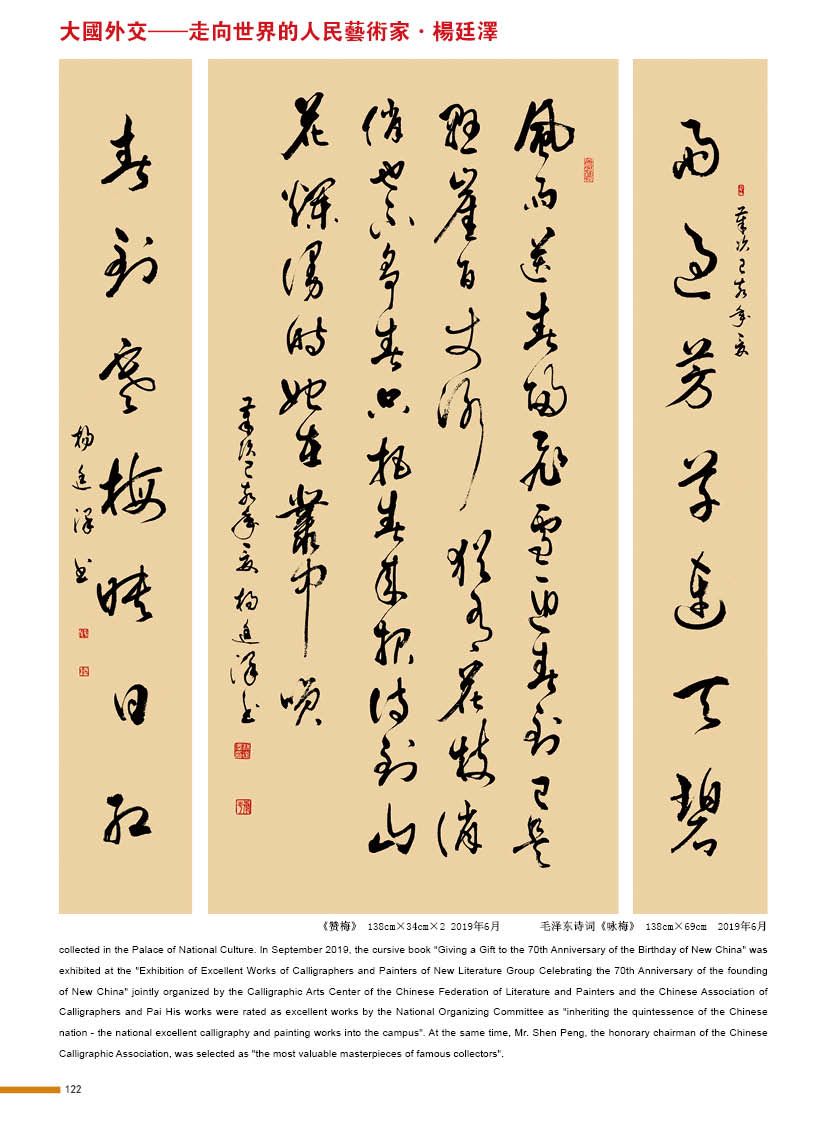 大國外交——走向世界的人民藝術家·楊廷澤
雨過芳草連天碧
歲次己亥年夏
風雨送春歸飛雪迎春到已是
懸崖百丈冰猶有花枝俏
俏也不爭春只把春來報待到山
花爛漫時她在叢中笑
歲次己亥年夏楊廷澤書
春到寒梅映日紅
楊廷澤書
《赞梅》 138cm×34cm×2 2019年6月
毛泽东诗词《咏梅》 138cm×69cm 2019年6月
collected in the Palace of National Culture. In September 2019, the cursive book "Giving a Gift to the 70th Anniversary of the Birthday of New China" was
exhibited at the "Exhibition of Excellent Works of Calligraphers and Painters of New Literature Group Celebrating the 70th Anniversary of the founding
of New China" jointly organized by the Calligraphic Arts Center of the Chinese Federation of Literature and Painters and the Chinese Association of
Calligraphers and Pai His works were rated as excellent works by the National Organizing Committee as "inheriting the quintessence of the Chinese
nation - the national excellent calligraphy and painting works into the campus". At the same time, Mr. Shen Peng, the honorary chairman of the Chinese
Calligraphic Association, was selected as "the most valuable masterpieces of famous collectors".
122